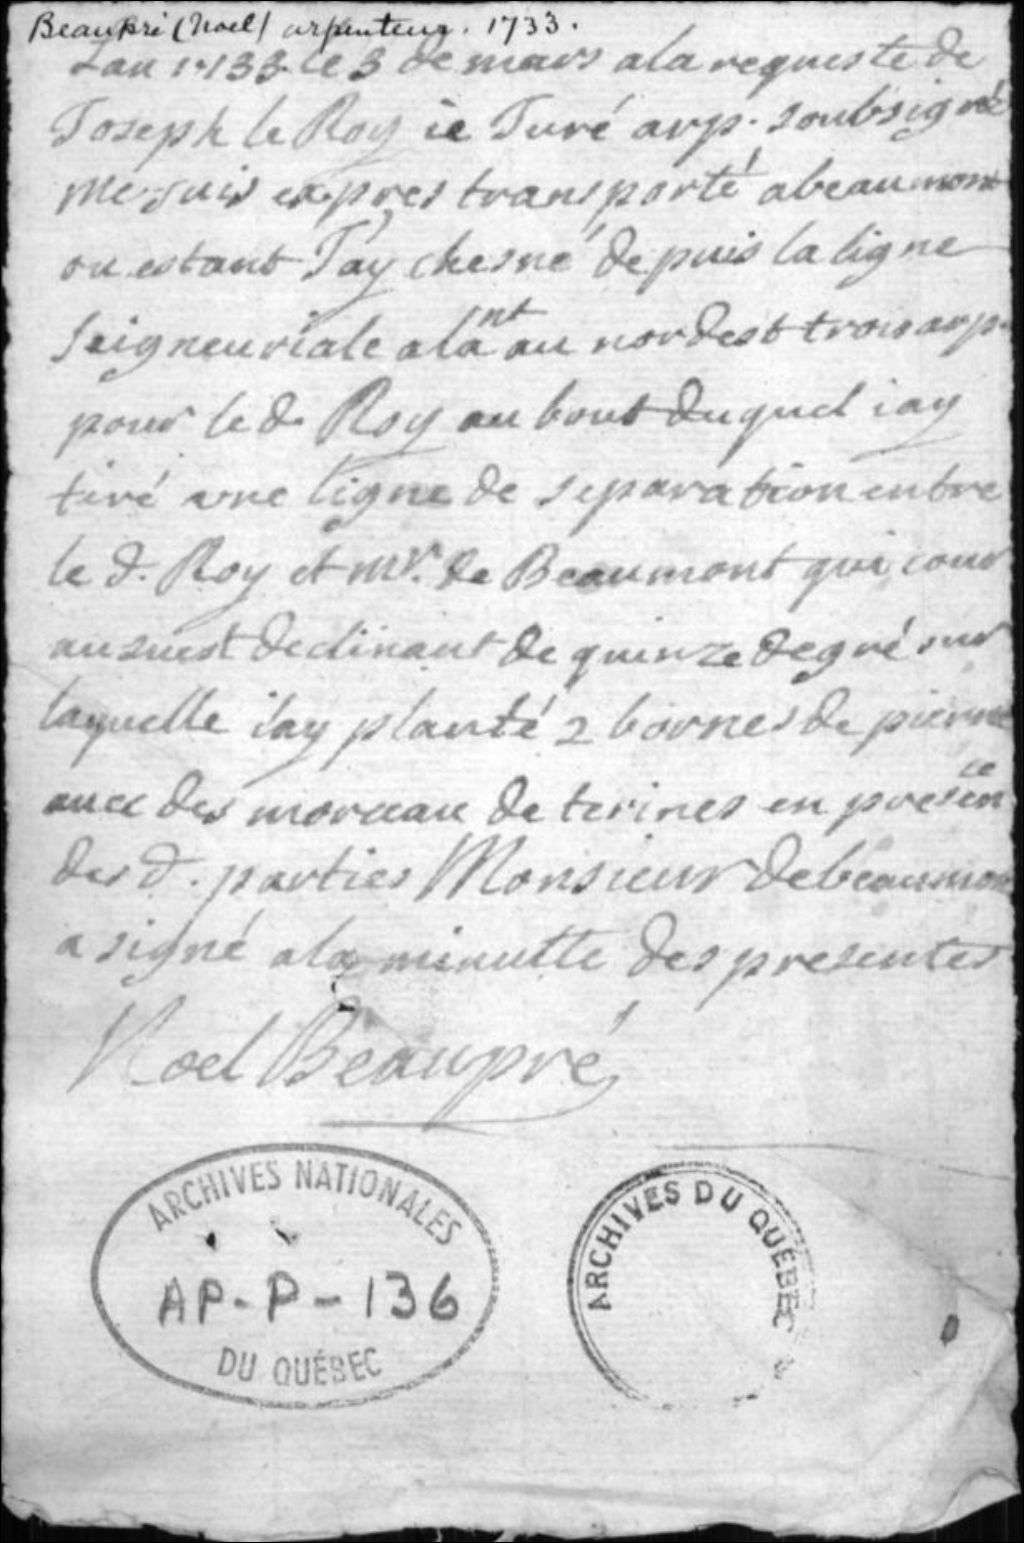 Beaupré (Noel) arpenteur. 1733.
Lan 1733 le 3 de mars ala requeste de
Joseph le Roy ie Juré arp. soubsigné
me suis expres transporté abeaumont
ou estant J'ay chesné depuis la ligne
seigneuriale alant au nordest trois arp.
pour le d. Roy au bout duquel iay
tiré une ligne de separation entre
le d. Roy et mr. de Beaumont qui cour
au suest declinant de quinze degré sur
laquelle iay planté 2 bornes de pierre
avec des morceau de terines en presence
des d. parties Monsieur debeaumont
a signé ala minutte des presentes
Noel Beaupré
ARCHIVES NATIONALES
AP-P-136
DU QUÉBEC
ARCHIVES DU QUÉBEC